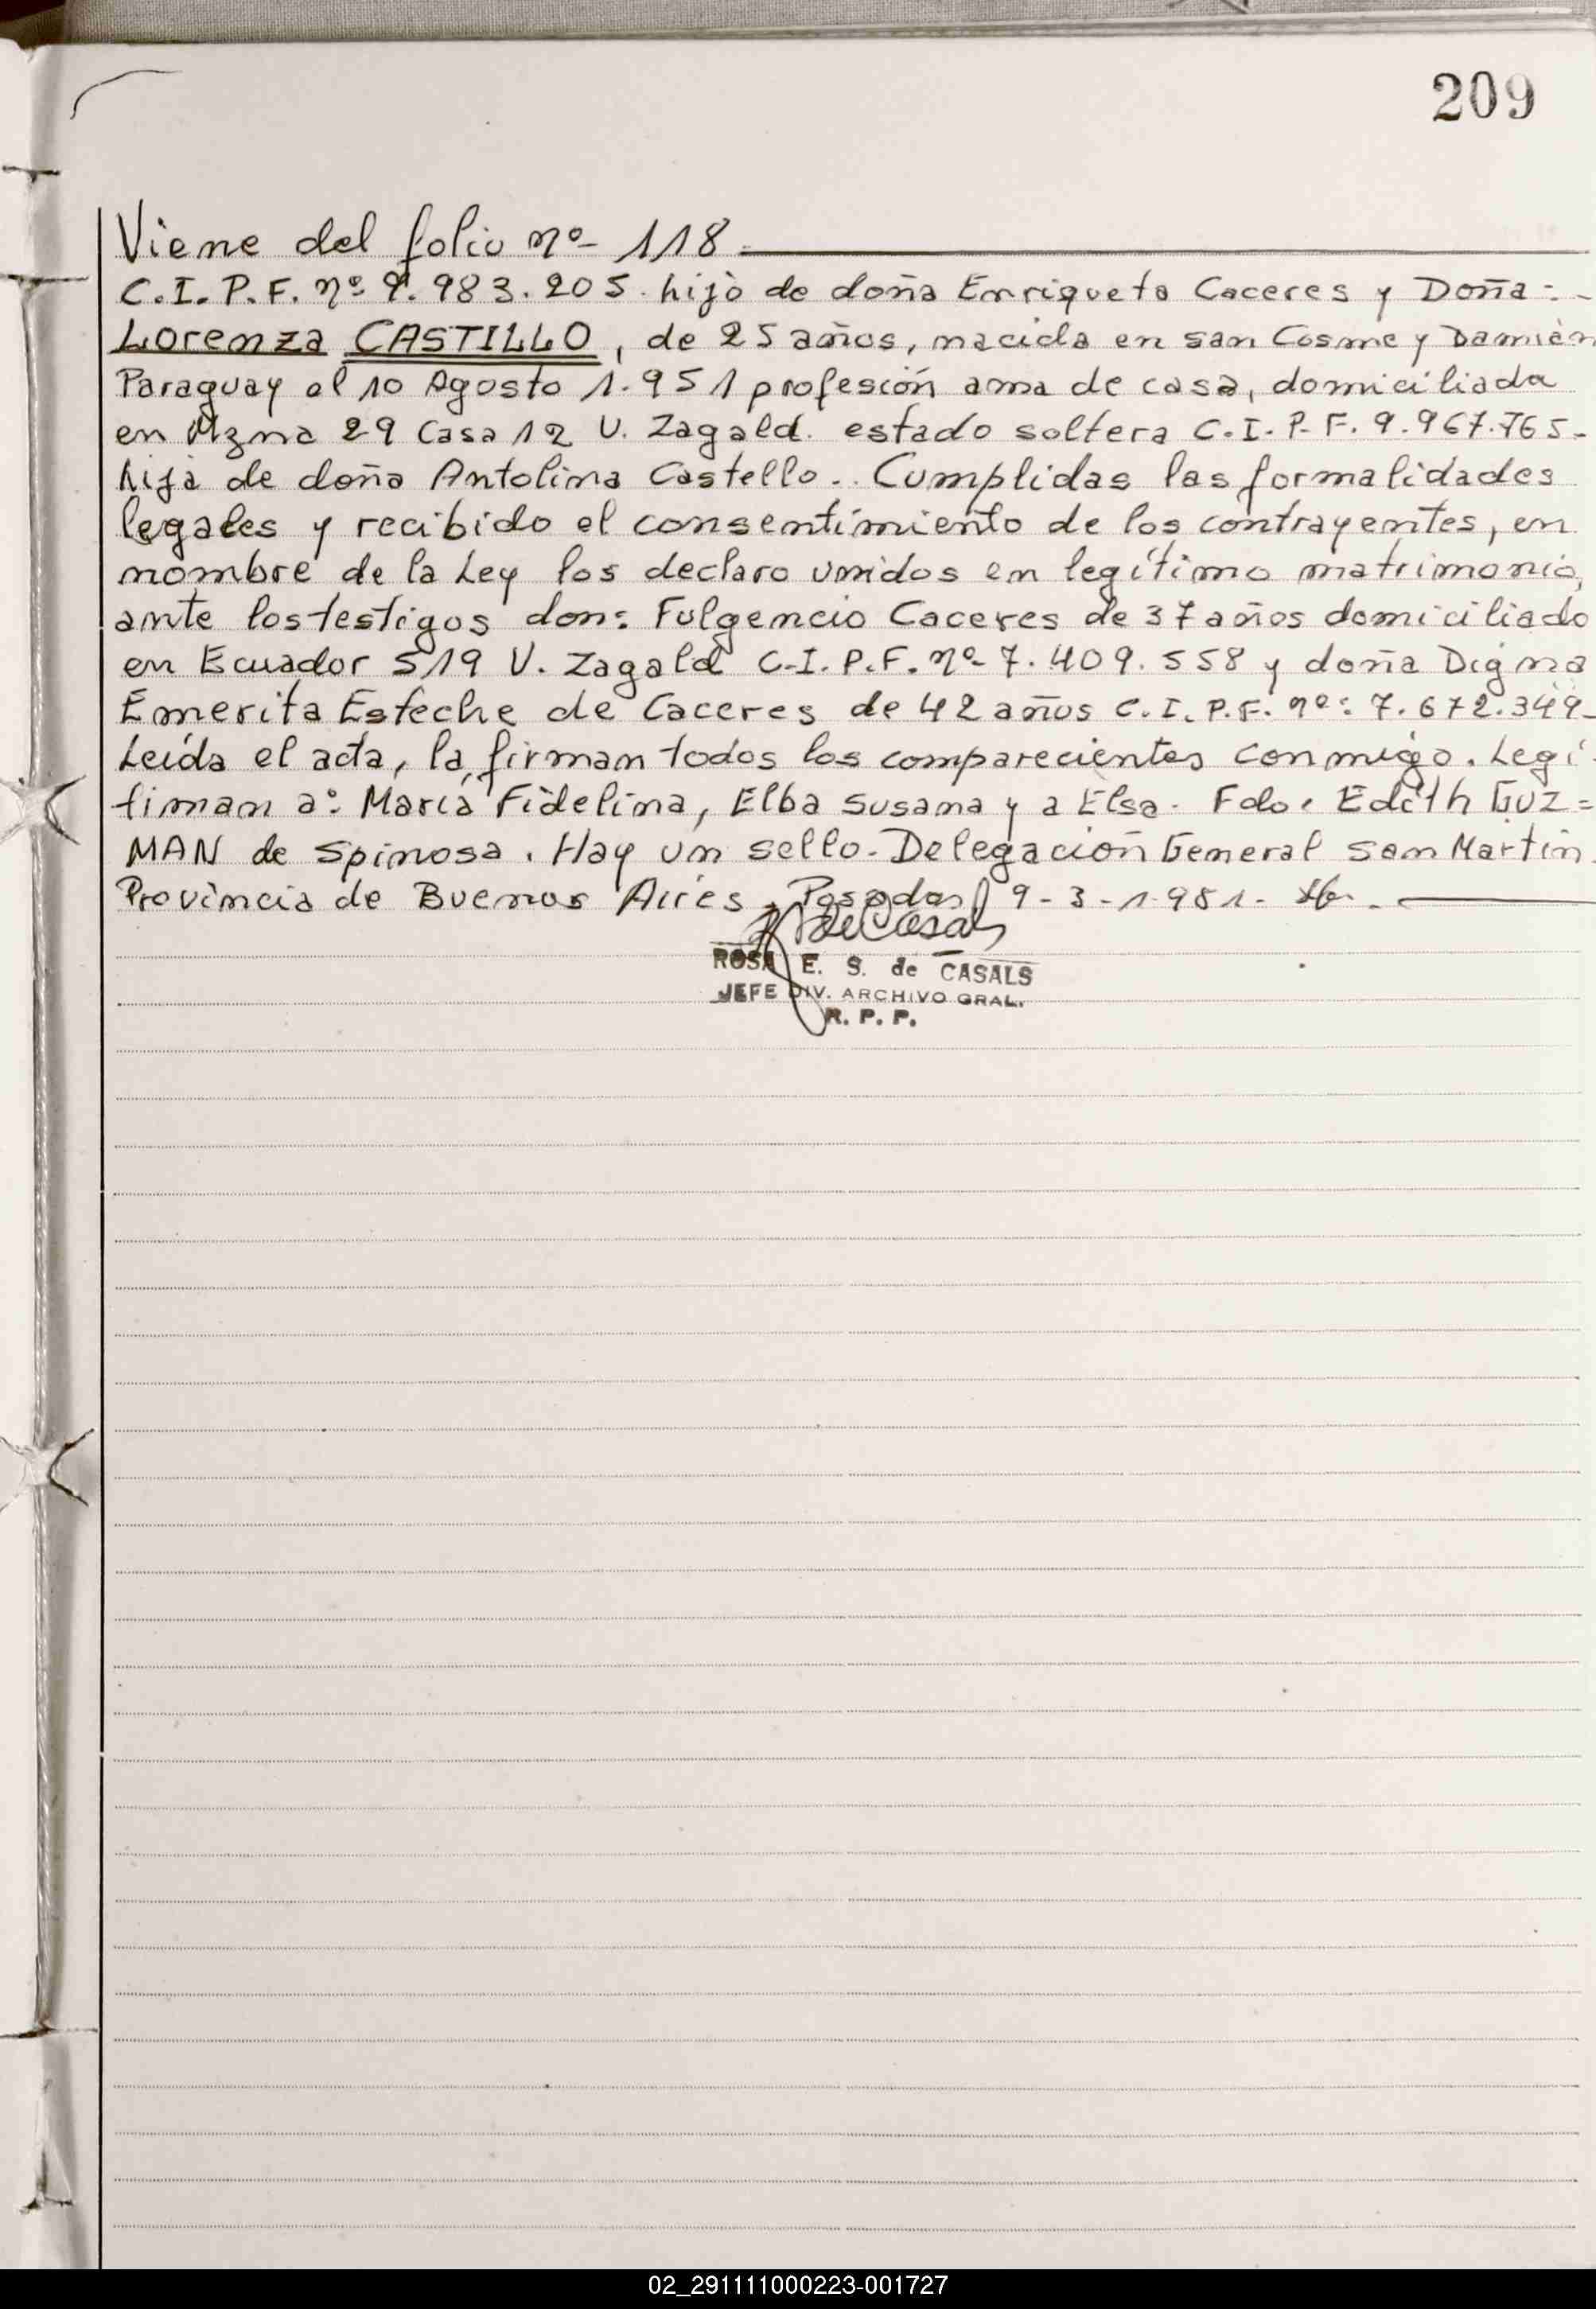 209
Viene del folio nº 118
C.I.P.F. nº 9.983.205. hijo de doña Enriqueta Caceres y Doña:-
Lorenza CASTILLO, de 25 años, nacida en san Cosme y Damián
Paraguay el 10 Agosto 1.951 profesión ama de casa, domiciliada
en Mzna 29 Casa 12 U. Zagald. estado soltera C.I.P.F. 9.967.765-
hija de doña Antolina Castello.. Cumplidas las formalidades
legales y recibido el consentimiento de los contrayentes, en
nombre de la Ley los declaro unidos en legítimo matrimonio,
ante los testigos don: Fulgencio Caceres de 37 años domiciliado
en Ecuador 519 V. Zagald C.I.P.F. nº 7.409.558 y doña Digna
Emerita Esteche de Caceres de 42 años C.I.P.F. nº: 7.672.349-
Leída el acta, la firman todos los comparecientes conmigo. Legi-
timan a: María Fidelina, Elba Susana y a Elsa. Fdo. Edith GUZ=
MAN de Spinosa. Hay un sello-Delegación General San Martin.
Provincia de Buenos Aires. Posadas, 9-3-1.981-
deCasals
ROSA E. S. de CASALS
JEFE DIV. ARCHIVO GRAL.
R. P. P.
02_291111000223-001727